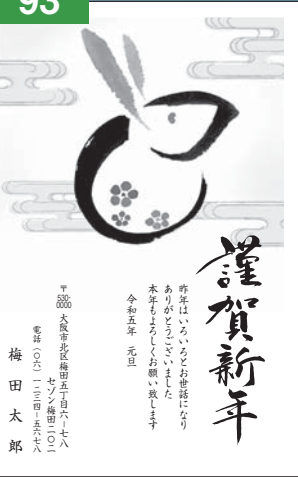 93
謹賀新年
昨年はいろいろとお世話になり
ありがとうございました
本年もよろしくお願い致します
令和五年 元旦
〒530-0000 大阪市北区梅田五丁目六ー七八
セゾン梅田二〇二
電話(〇六)一二三四ー五六七八
梅田太郎